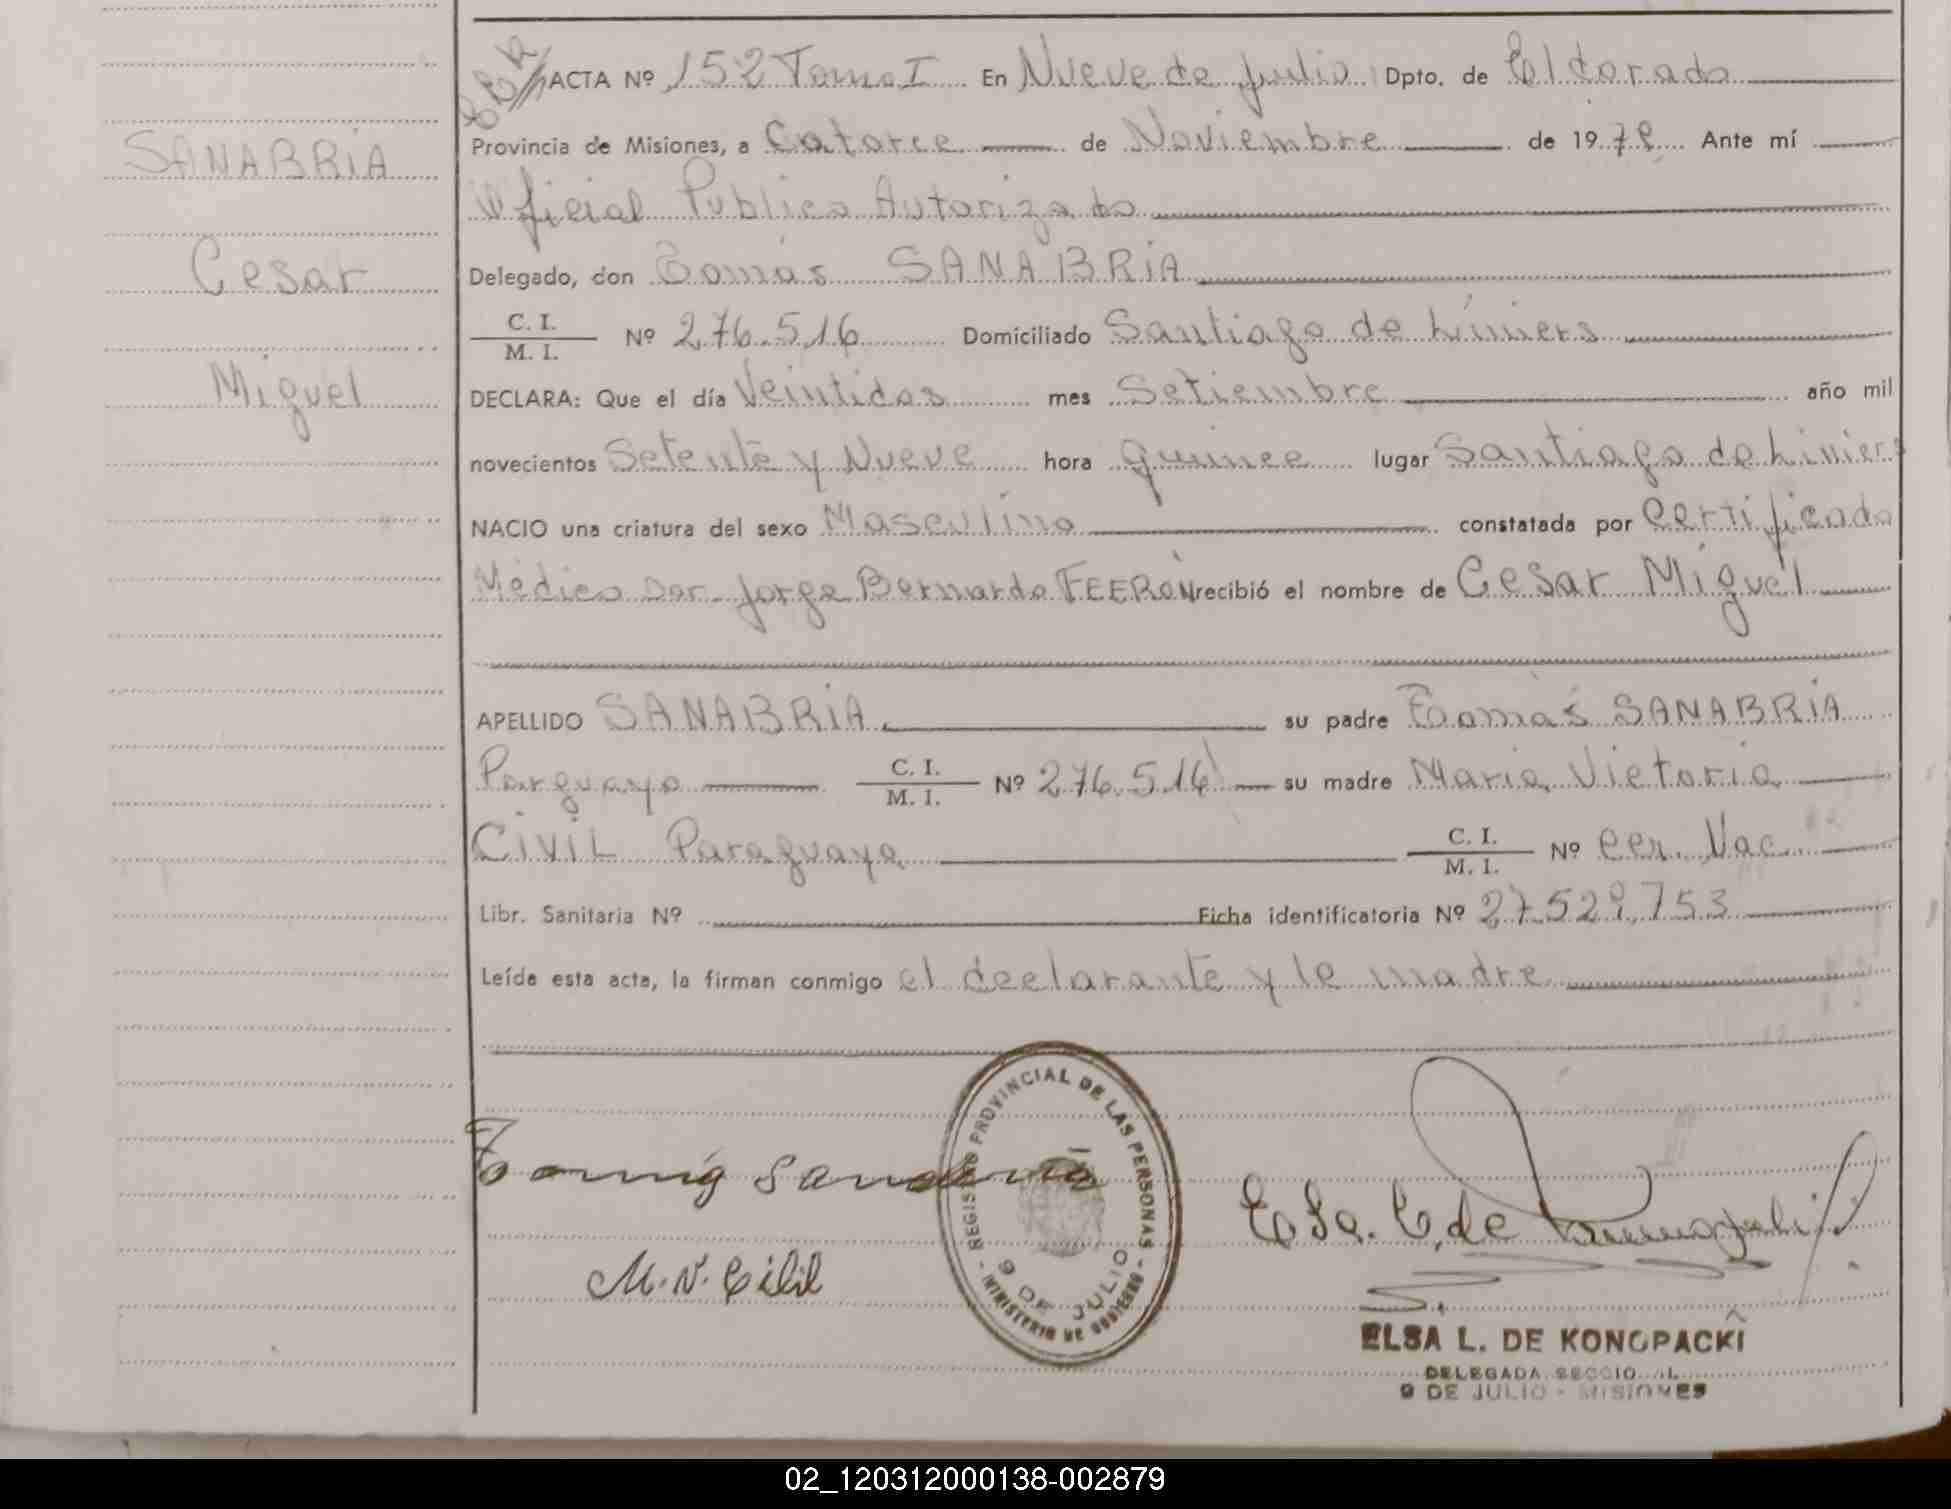 ACTA Nº 152 Tomo I En Nueve de julio Dpto. de Eldorado
Provincia de Misiones, a Catorce de Noviembre de 1979 Ante mí
Oficial Publico Autorizado
Delegado, don Tomás SANABRIA
C. I.
M. I. Nº 276.516 Domiciliado Santiago de Liniers
DECLARA: Que el día Veintidos mes Setiembre año mil
novecientos Setenta y Nueve hora quince lugar Santiago de Liniers
NACIO una criatura del sexo Masculino constatada por Certificado
Médico Dor. Jorge Bernardo FEERON recibió el nombre de Cesar Miguel
APELLIDO SANABRIA su padre Tomás SANABRIA
Parguayo C. I.
M. I. Nº 276.516 su madre Maria Victoria
CIVIL Paraguaya C. I.
M. I. Nº Cer. Nac.
Libr. Sanitaria Nº Ficha identificatoria Nº 27.529.753
Leída esta acta, la firman conmigo el declarante y la madre
SANABRIA
Cesar
Miguel
Tomás Sanabria
M. V. Cibil
REGISTRO PROVINCIAL DE LAS PERSONAS
9 DE JULIO
- MINISTERIO DE GOBIERNO -
Elsa L. de Konopacki
ELSA L. DE KONOPACKI
DELEGADA SECCIONAL
9 DE JULIO - MISIONES
02_120312000138-002879